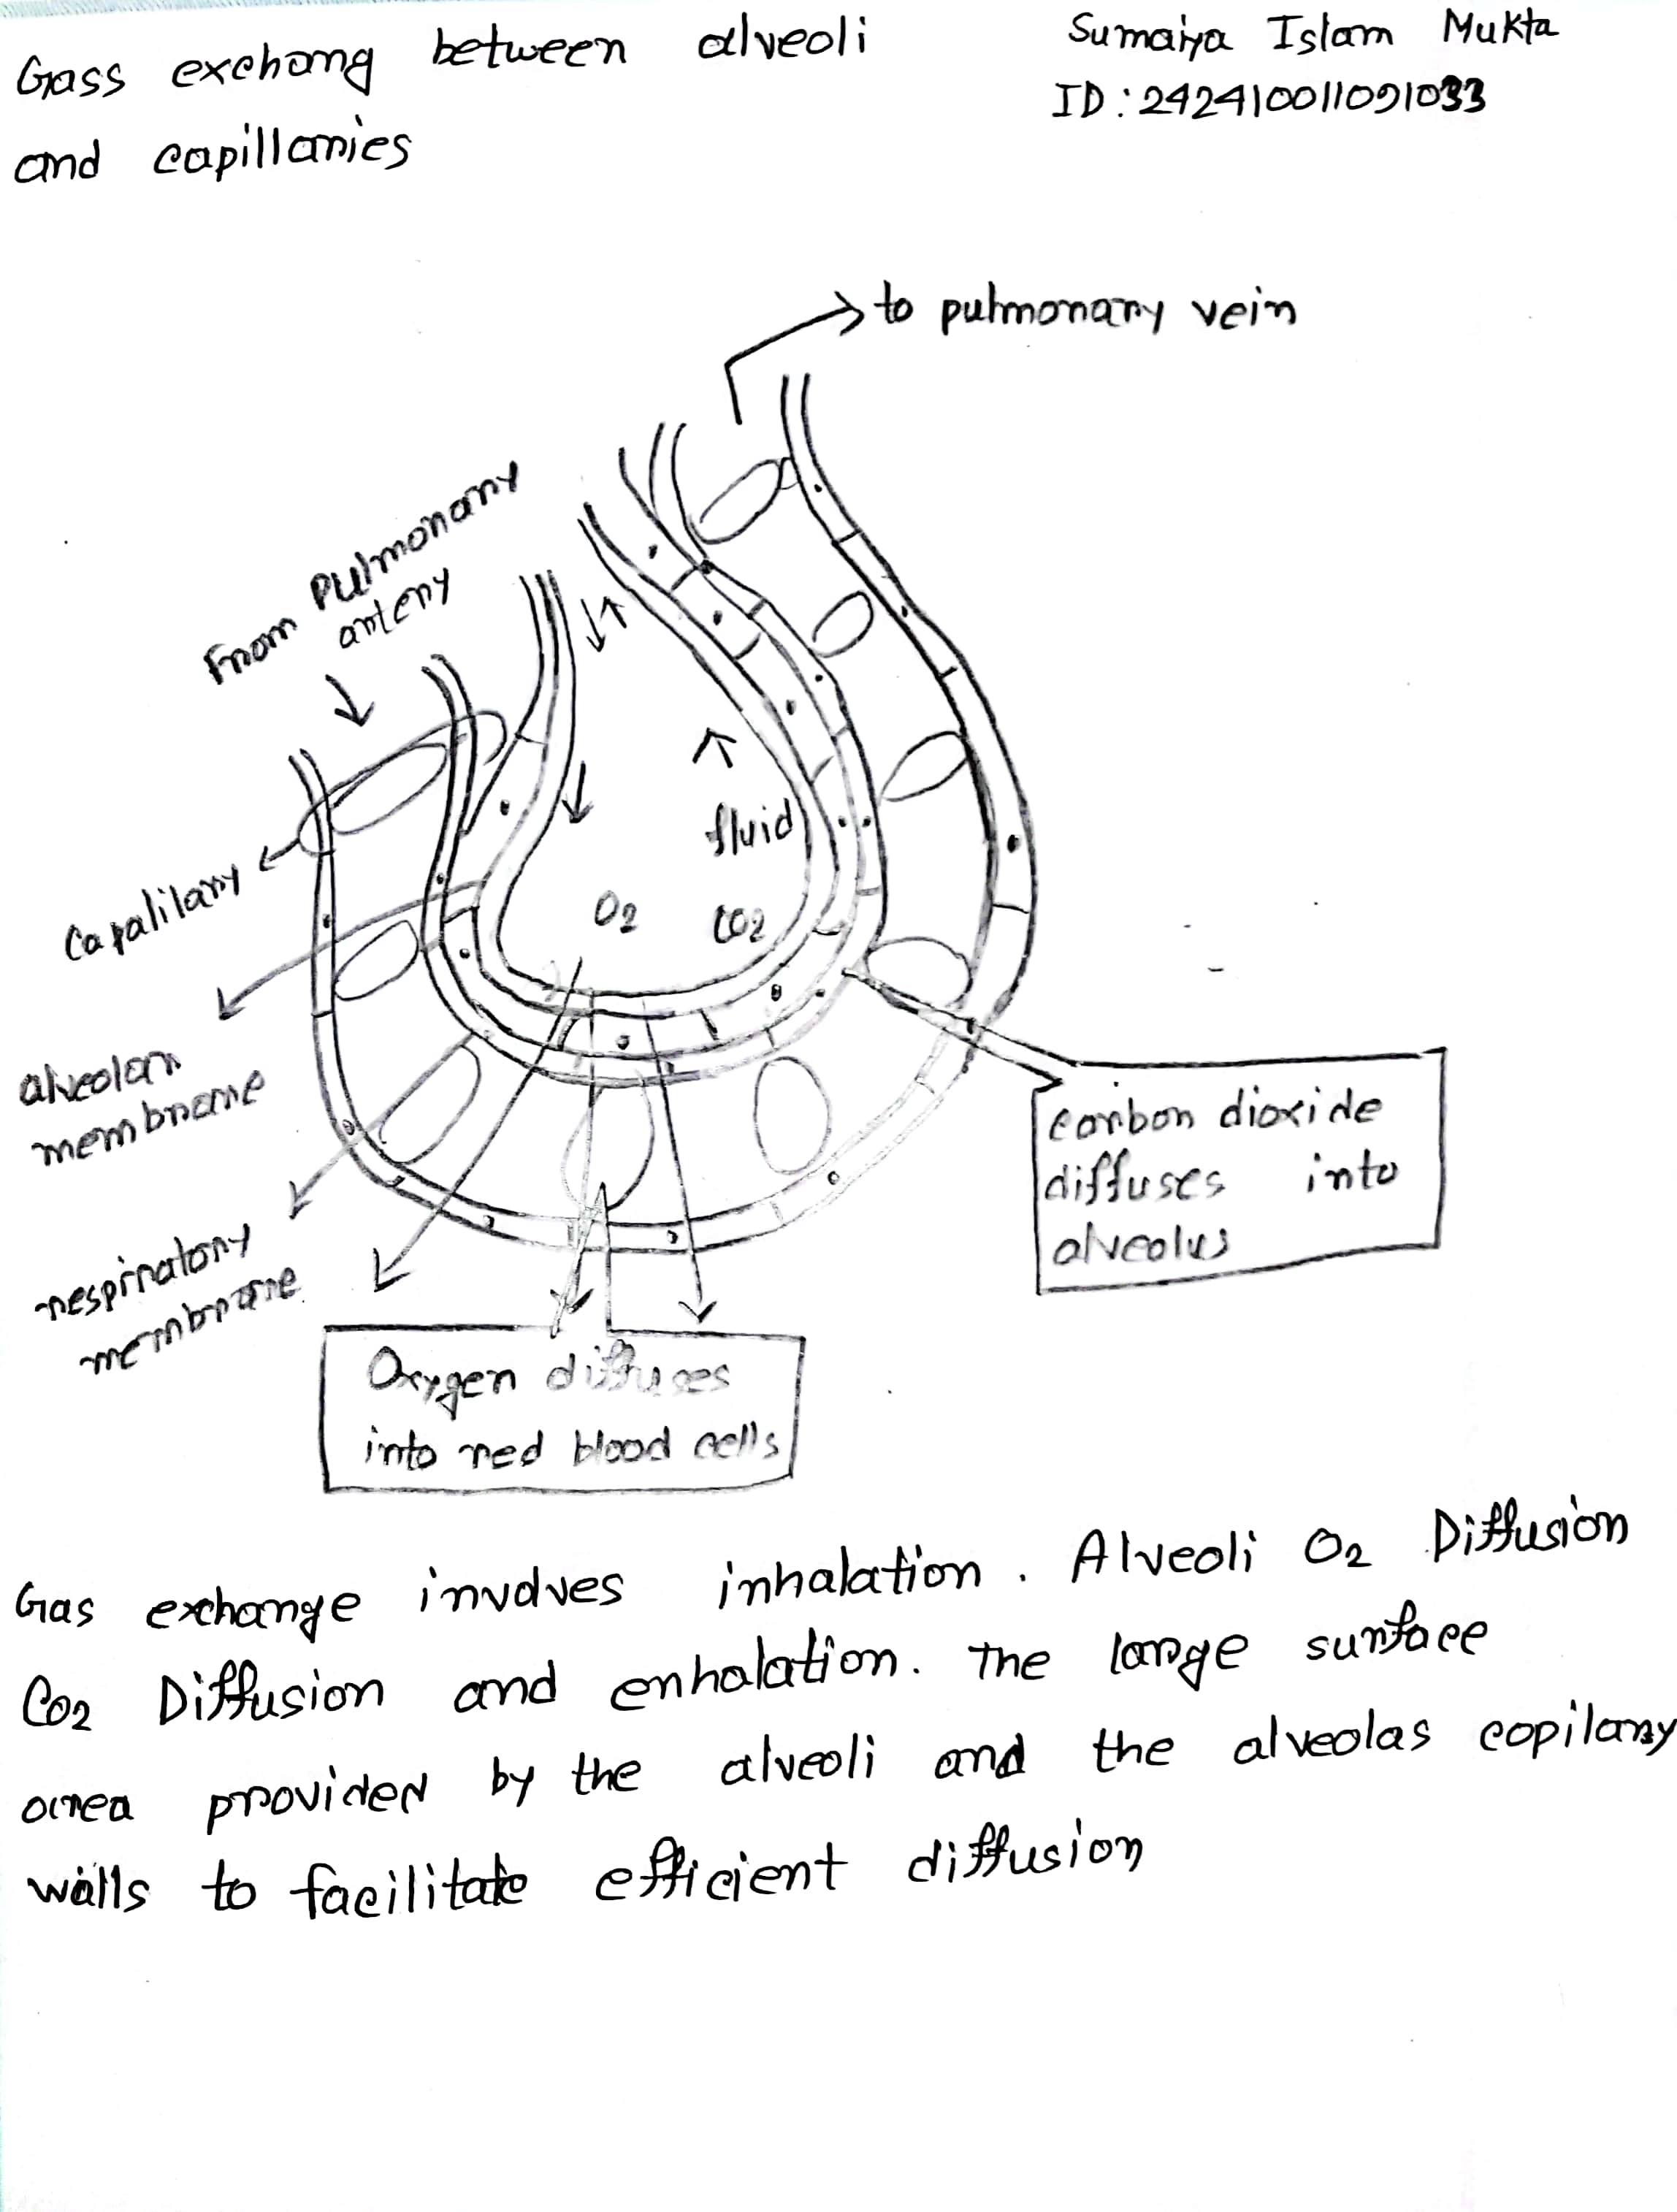 Gass exchang between alveoli
and capillaries
Sumaiya Islam Mukta
ID: 242410011091033
to pulmonary vein
From Pulmonary
artery
Capalilary
alveolar
membrane
respiratory
membrane
fluid
O2
CO2
carbon dioxide
diffuses into
alveolus
Oxygen diffuses
into red blood cells
Gas exchange involves inhalation. Alveoli O2 Diffusion
CO2 Diffusion and enhalation. The large surface
area provided by the alveoli and the alveolas copilary
walls to facilitate efficient diffusion